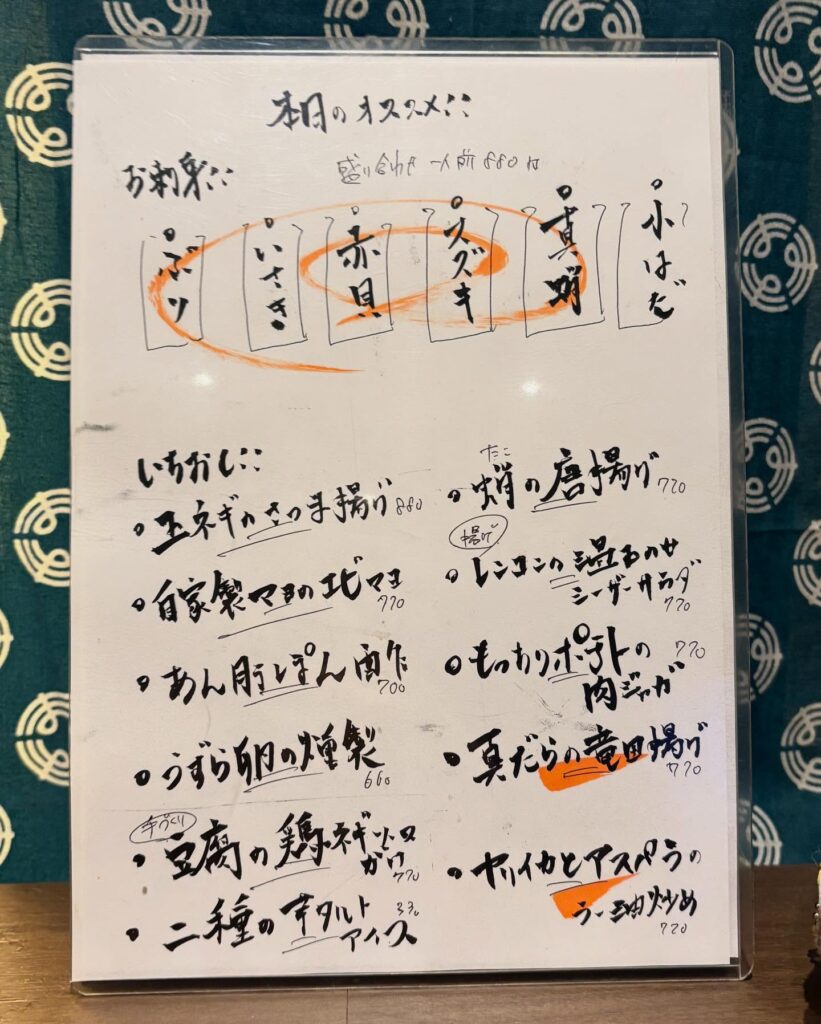 本日のオススメ!!
お刺身!!
盛り合わせ 一人前 880円
小はだ
真蛸
スズキ
赤貝
いさき
ぶり
いちおし!!
玉ネギのさつま揚げ 880
自家製マヨのエビマヨ 770
あん肝ぽん酢 700
うずら卵の燻製 660
手づくり
豆腐の鶏ネギ
がけ 770
二種の芋タルト
アイス 330
たこ
蛸の唐揚げ 770
揚げ
レンコンの温玉のせ
シーザーサラダ
770
もっちりポテトの 770
肉ジャガ
真だらの竜田揚げ 770
ヤリイカとアスパラの
ラー油炒め
770